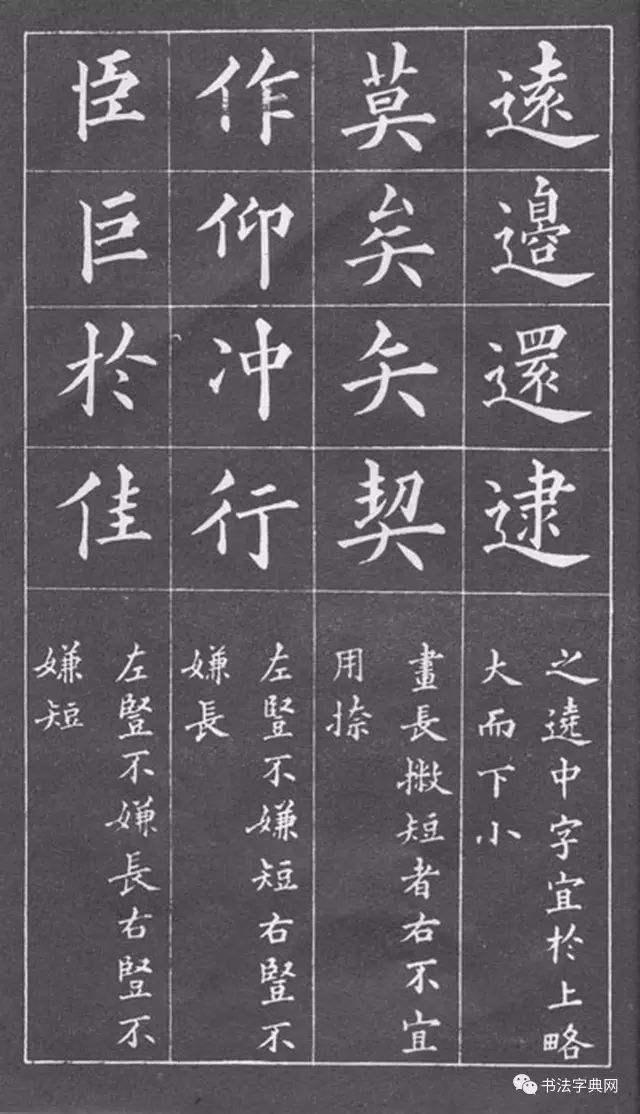 遠邊還逮
之遶中字宜於上略
大而下小
莫矣矢契
畫長撇短者右不宜
用捺
作仰冲行
左豎不嫌短右豎不
嫌長
臣巨於佳
左豎不嫌長右豎不
嫌短
书法字典网